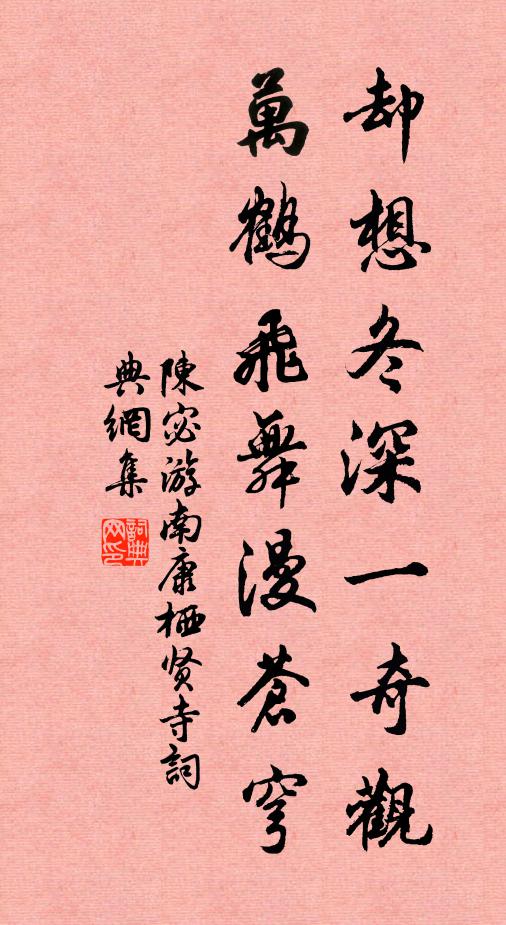 却想冬深一奇觀
萬鶴飛舞漫蒼穹
陳宓游南康栖贤寺詞
典網集
詞典
网印